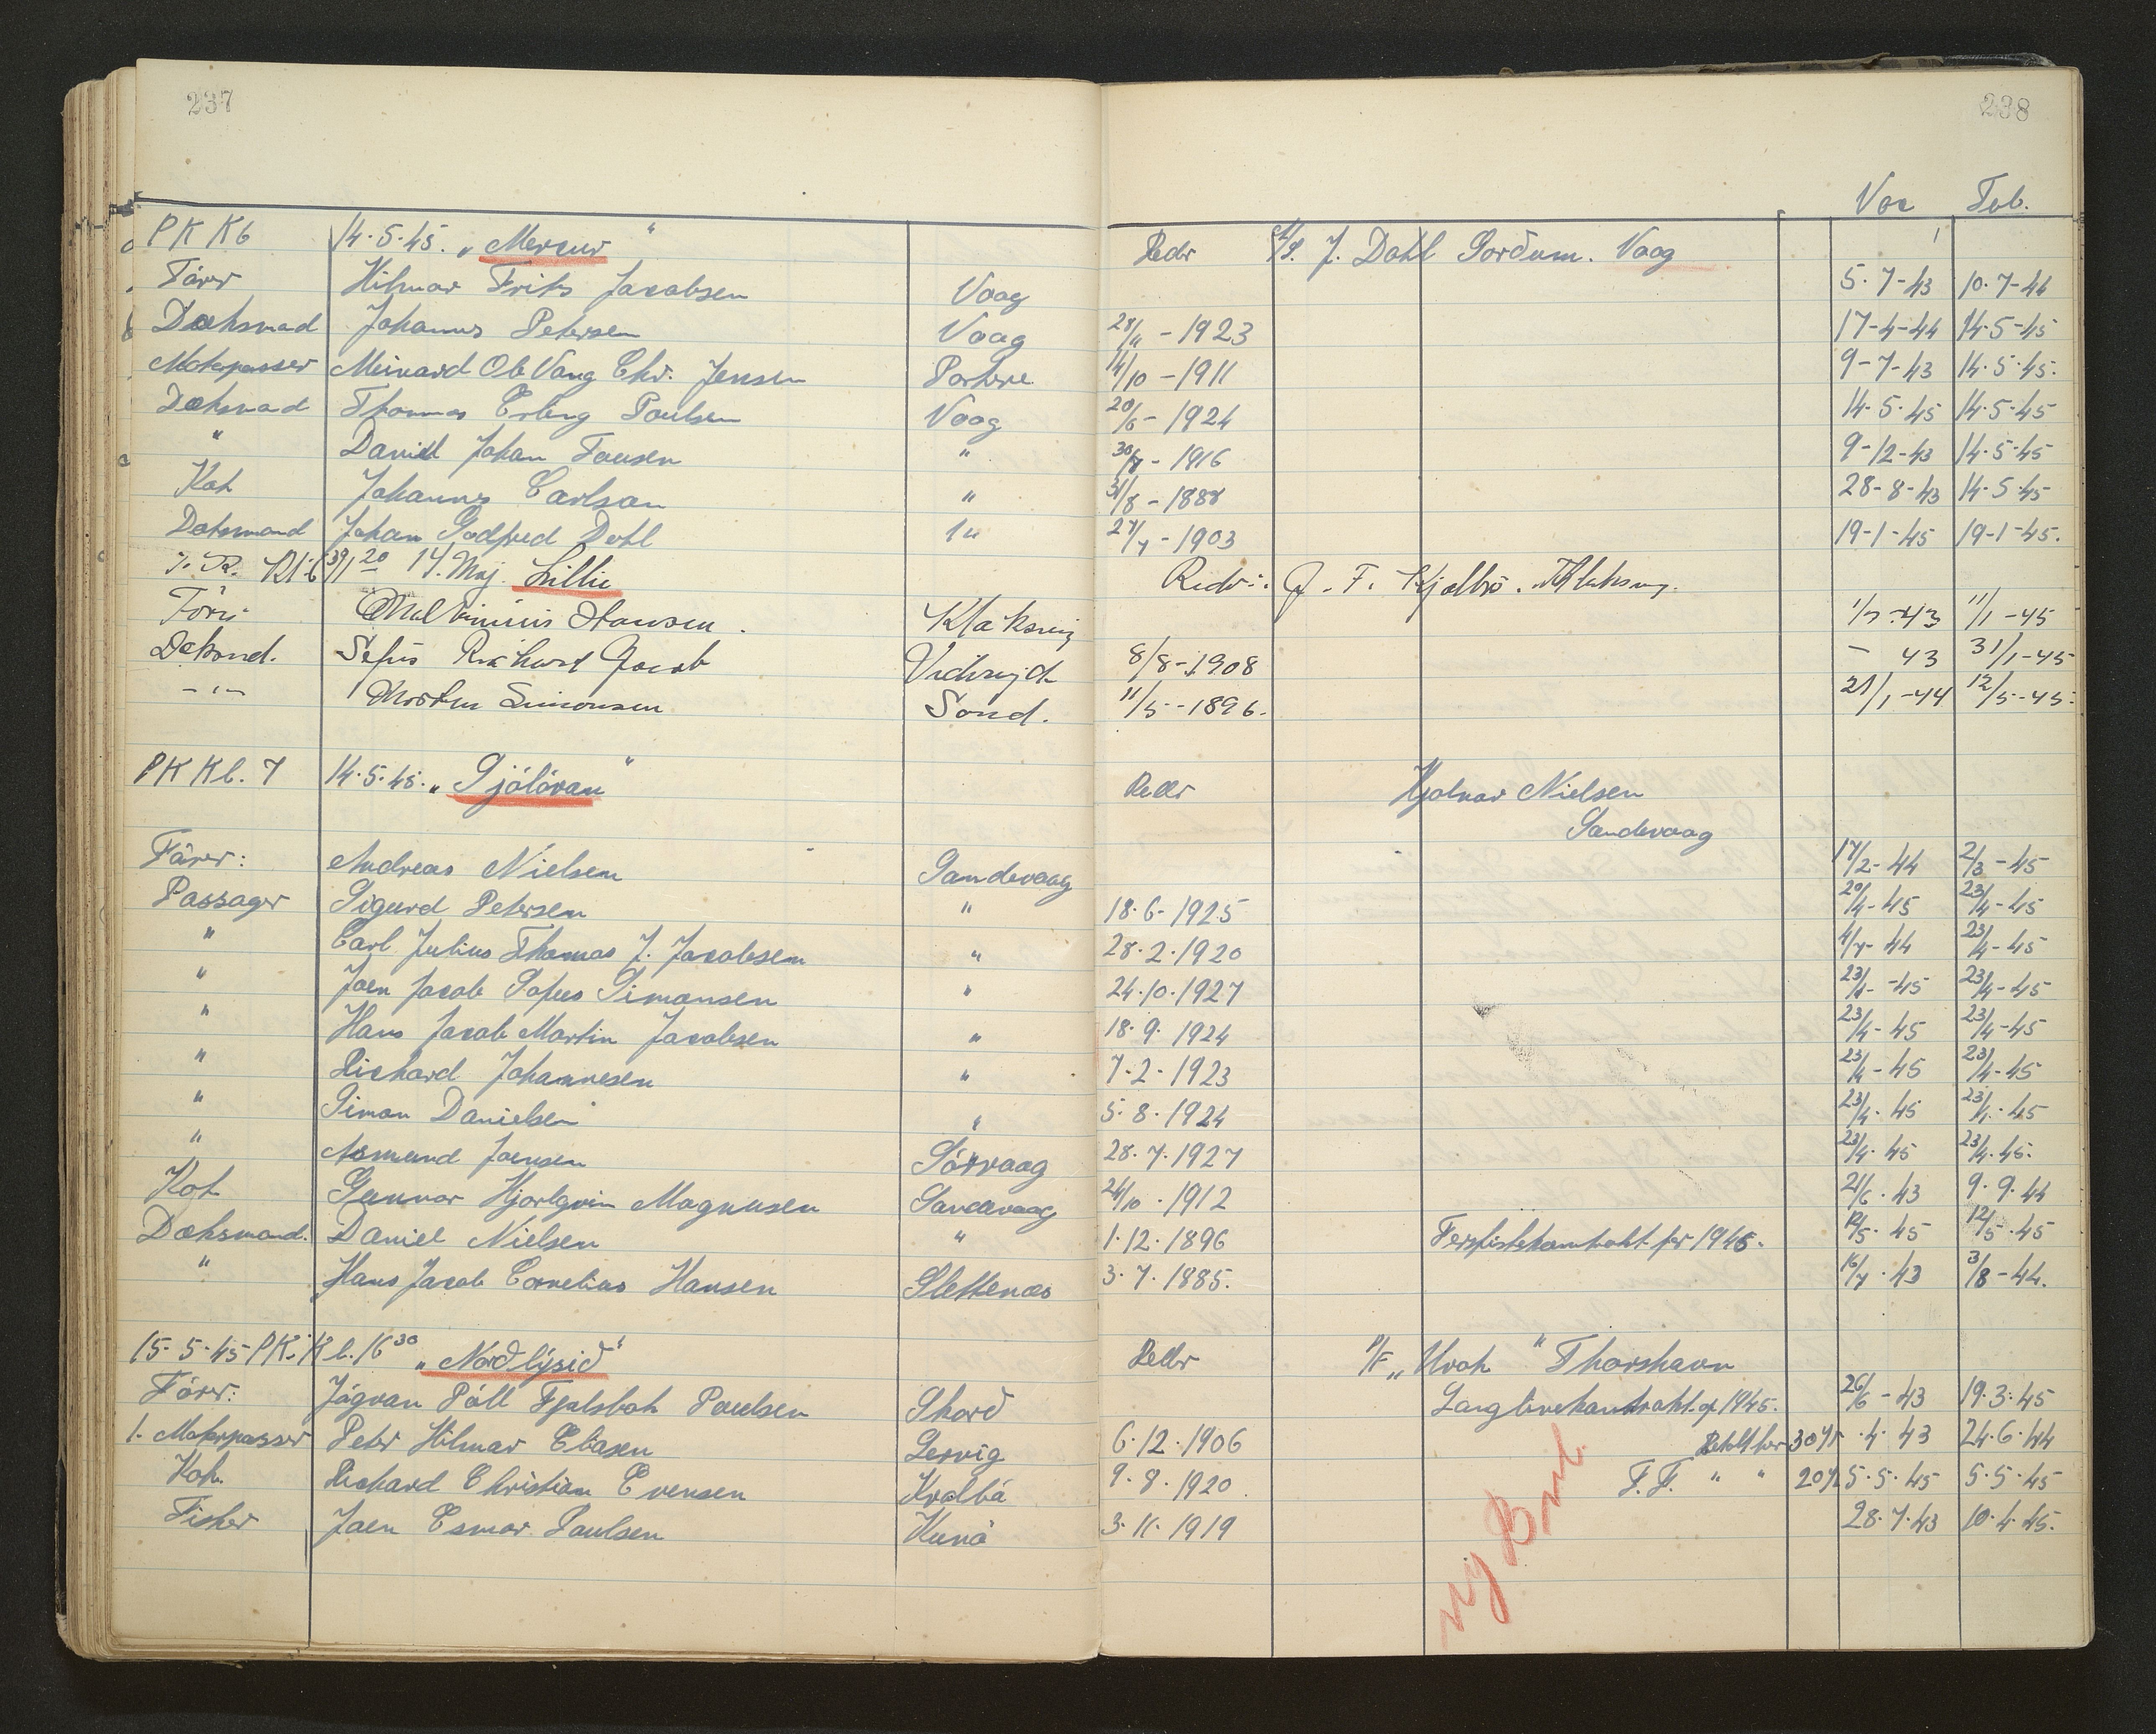 237
238
Vac Tub.
PK K6 14.5.45. „Mercur" Redr A/S. J. Dahl Sordum. Vaag
Förer Hilmar Frits Jacobsen Vaag 5.7-43 10.7-44
Dæksmad Johannes Petersen Vaag 28/11-1923 17-4-44 14.5-45
Motorpasser Meinard Ole Vang Chr. Jensen Porkere 14/10-1911 9-7-43 14.5.45.
Dæksmad Thomas Erling Poulsen Vaag 20/6-1924 14.5.45 14.5.45
" Daniel Johan Tousen " 1916 9-12-43 14.5.45
Kok Johannes Carlson " 31/8-1888 28-8-43 14.5.45
Dæksmand Johan Godfred Dahl " 27/7-1903 19-1-45 19-1-45.
14. Maj. Lillie Redr:. J. F. Kjølbro. Klaksvig.
Förer Hansen. Klaksvig 1/7-43 11/1-45
Dæksmd. Sofus Richard Jacob Viderejde 8/8-1908 - 43 31/1-45
-"- Morten Simonsen Sand. 11/5-1896. 21/1-44 12/5-45.
PK Kl. 7 14.5.45. „Sjólóvan" Reder Hjalmar Nielsen
Sandevaag
Förer: Andreas Nielsen Sandevaag 17/2-44 2/3-45
Passager Sigurd Petersen " 18.6-1925 20/4-45 23/4-45
" Carl Julius Thomas J. Jacobsen " 28.2.1920 4/7-44 23/4-45
" Joen Jacob Sofus Simonsen " 24.10.1927 23/4-45 23/4-45
" Hans Jacob Martin Jacobsen " 18.9.1924 23/4-45 23/4-45
" Richard Johannesen " 7.2.1923 23/4-45 23/4-45
" Simon Danielsen " 5.8.1924 23/4.45 23/4.45
" Asmund Joensen Sórvaag 28.7.1927 23/4.45 23/4.45.
Kok Gunnar Hjorlgvin Magnusen Sandevaag 24/10.1912 21/6.43 9.9.44
Dæksmand. Daniel Nielsen " 1.12.1896 Ferskfiskkontrakt for 1945. 12/5.45 12/5.45
" Hans Jacob Cornelius Hansen Slettenæs 3.7.1885. 16/7.43 3/8-44.
15-5-45 PK. Kl. 16³⁰ „Nordlýsið" Reder P/F „ " Thorshavn
Förer: Jógvan Páll Fjalsbak Poulsen Skard Langlinekontrakt af 1945. 26/6-43 19.3.45
1. Motorpasser Peter Hilmar Eliasen Lervig 6.12.1906 30% .4.43 24.6.44
Kok. Richard Christian Evensen Kvalbø 9.8.1920. F.F. " " 20% 5.5.45 5.5.45
Fisker Joen Esmar Poulsen Kunø 3.11.1919 28.7.43 10.4.45.